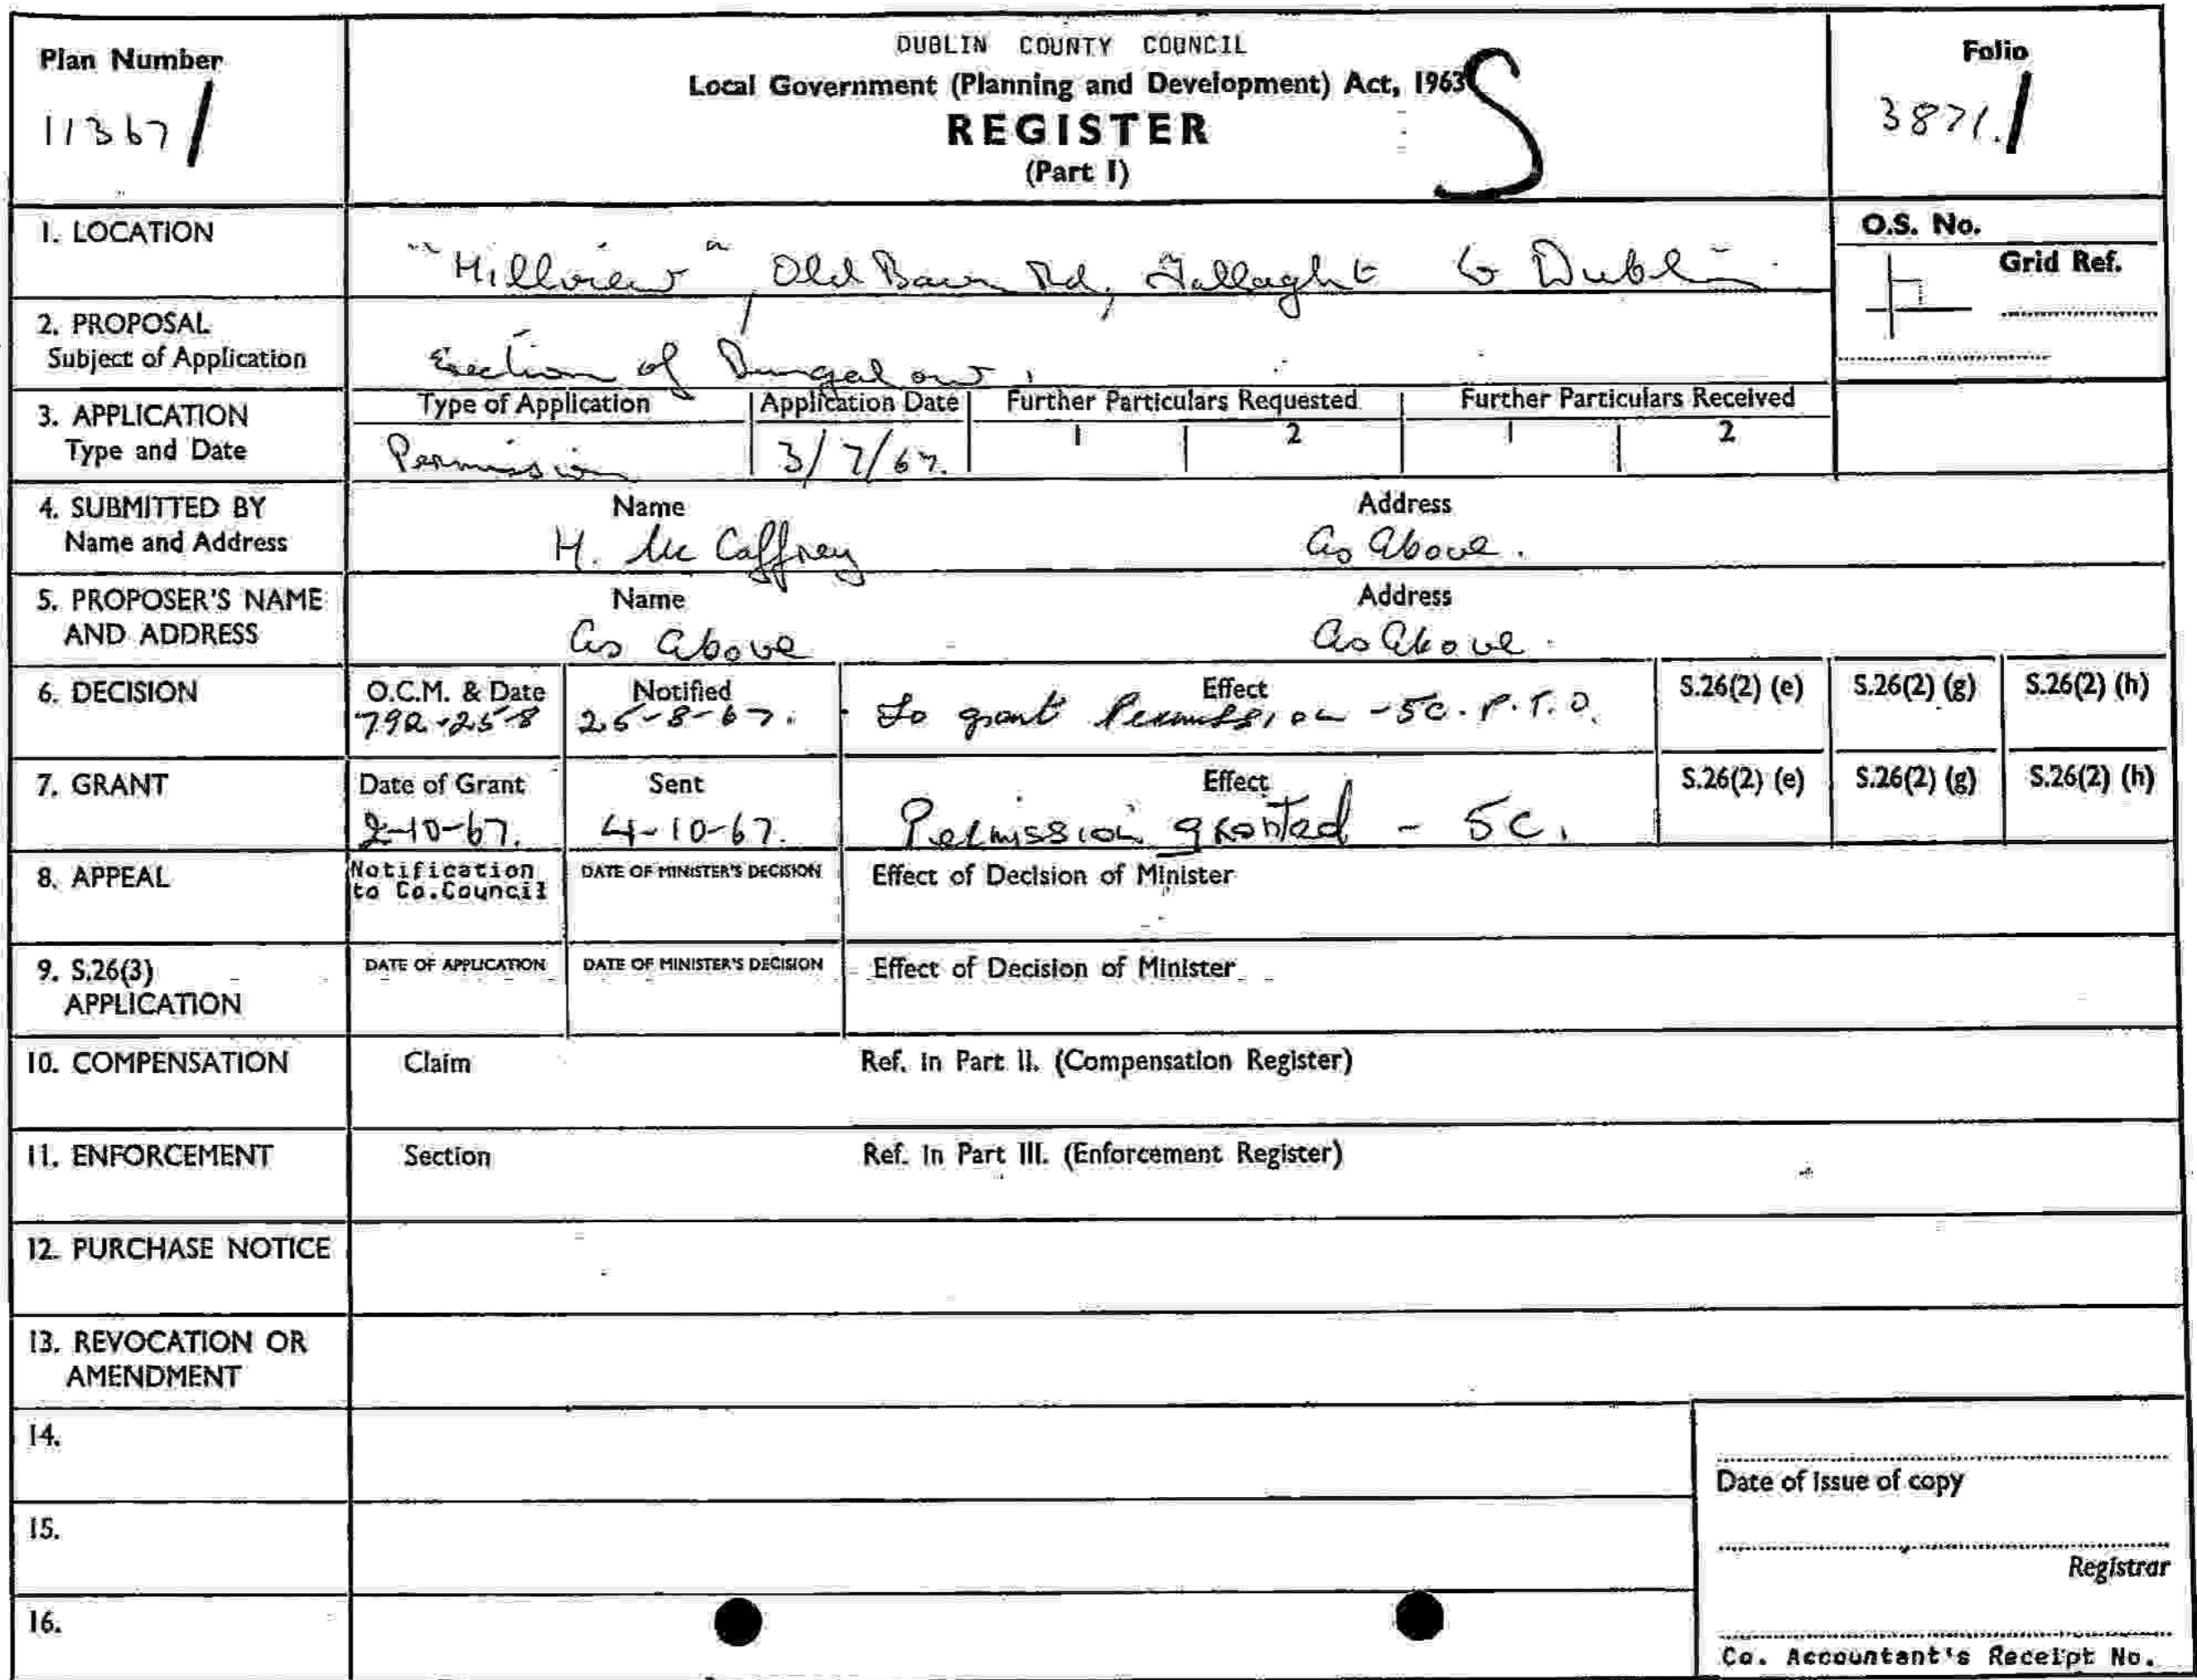 DUBLIN COUNTY COUNCIL
Plan Number
11367/
Local Government (Planning and Development) Act, 1963
REGISTER
(Part I)
S
Folio
3871./
1. LOCATION
"Hillview", Old Bawn Rd, Tallaght Co Dublin
O.S. No.
Grid Ref.
2. PROPOSAL
Subject of Application
Erection of Bungalow.
3. APPLICATION
Type and Date
Type of Application
Application Date
Further Particulars Requested
Further Particulars Received
1
2
1
2
Permission
3/7/67.
4. SUBMITTED BY
Name and Address
Name
Address
H. Mc Caffrey
As Above.
5. PROPOSER'S NAME
AND ADDRESS
Name
Address
As Above
As Above.
6. DECISION
O.C.M. & Date
Notified
Effect
S.26(2) (e)
S.26(2) (g)
S.26(2) (h)
25-8-67.
To grant Permission - 5c. P.T.O.
7. GRANT
Date of Grant
Sent
Effect
S.26(2) (e)
S.26(2) (g)
S.26(2) (h)
2-10-67.
4-10-67.
Permission granted - 5C.
8. APPEAL
Notification
to Co.Council
DATE OF MINISTER'S DECISION
Effect of Decision of Minister
9. S.26(3)
APPLICATION
DATE OF APPLICATION
DATE OF MINISTER'S DECISION
Effect of Decision of Minister
10. COMPENSATION
Claim
Ref. in Part II. (Compensation Register)
11. ENFORCEMENT
Section
Ref. in Part III. (Enforcement Register)
12. PURCHASE NOTICE
13. REVOCATION OR
AMENDMENT
14.
15.
16.
Date of issue of copy
Registrar
Co. Accountant's Receipt No.